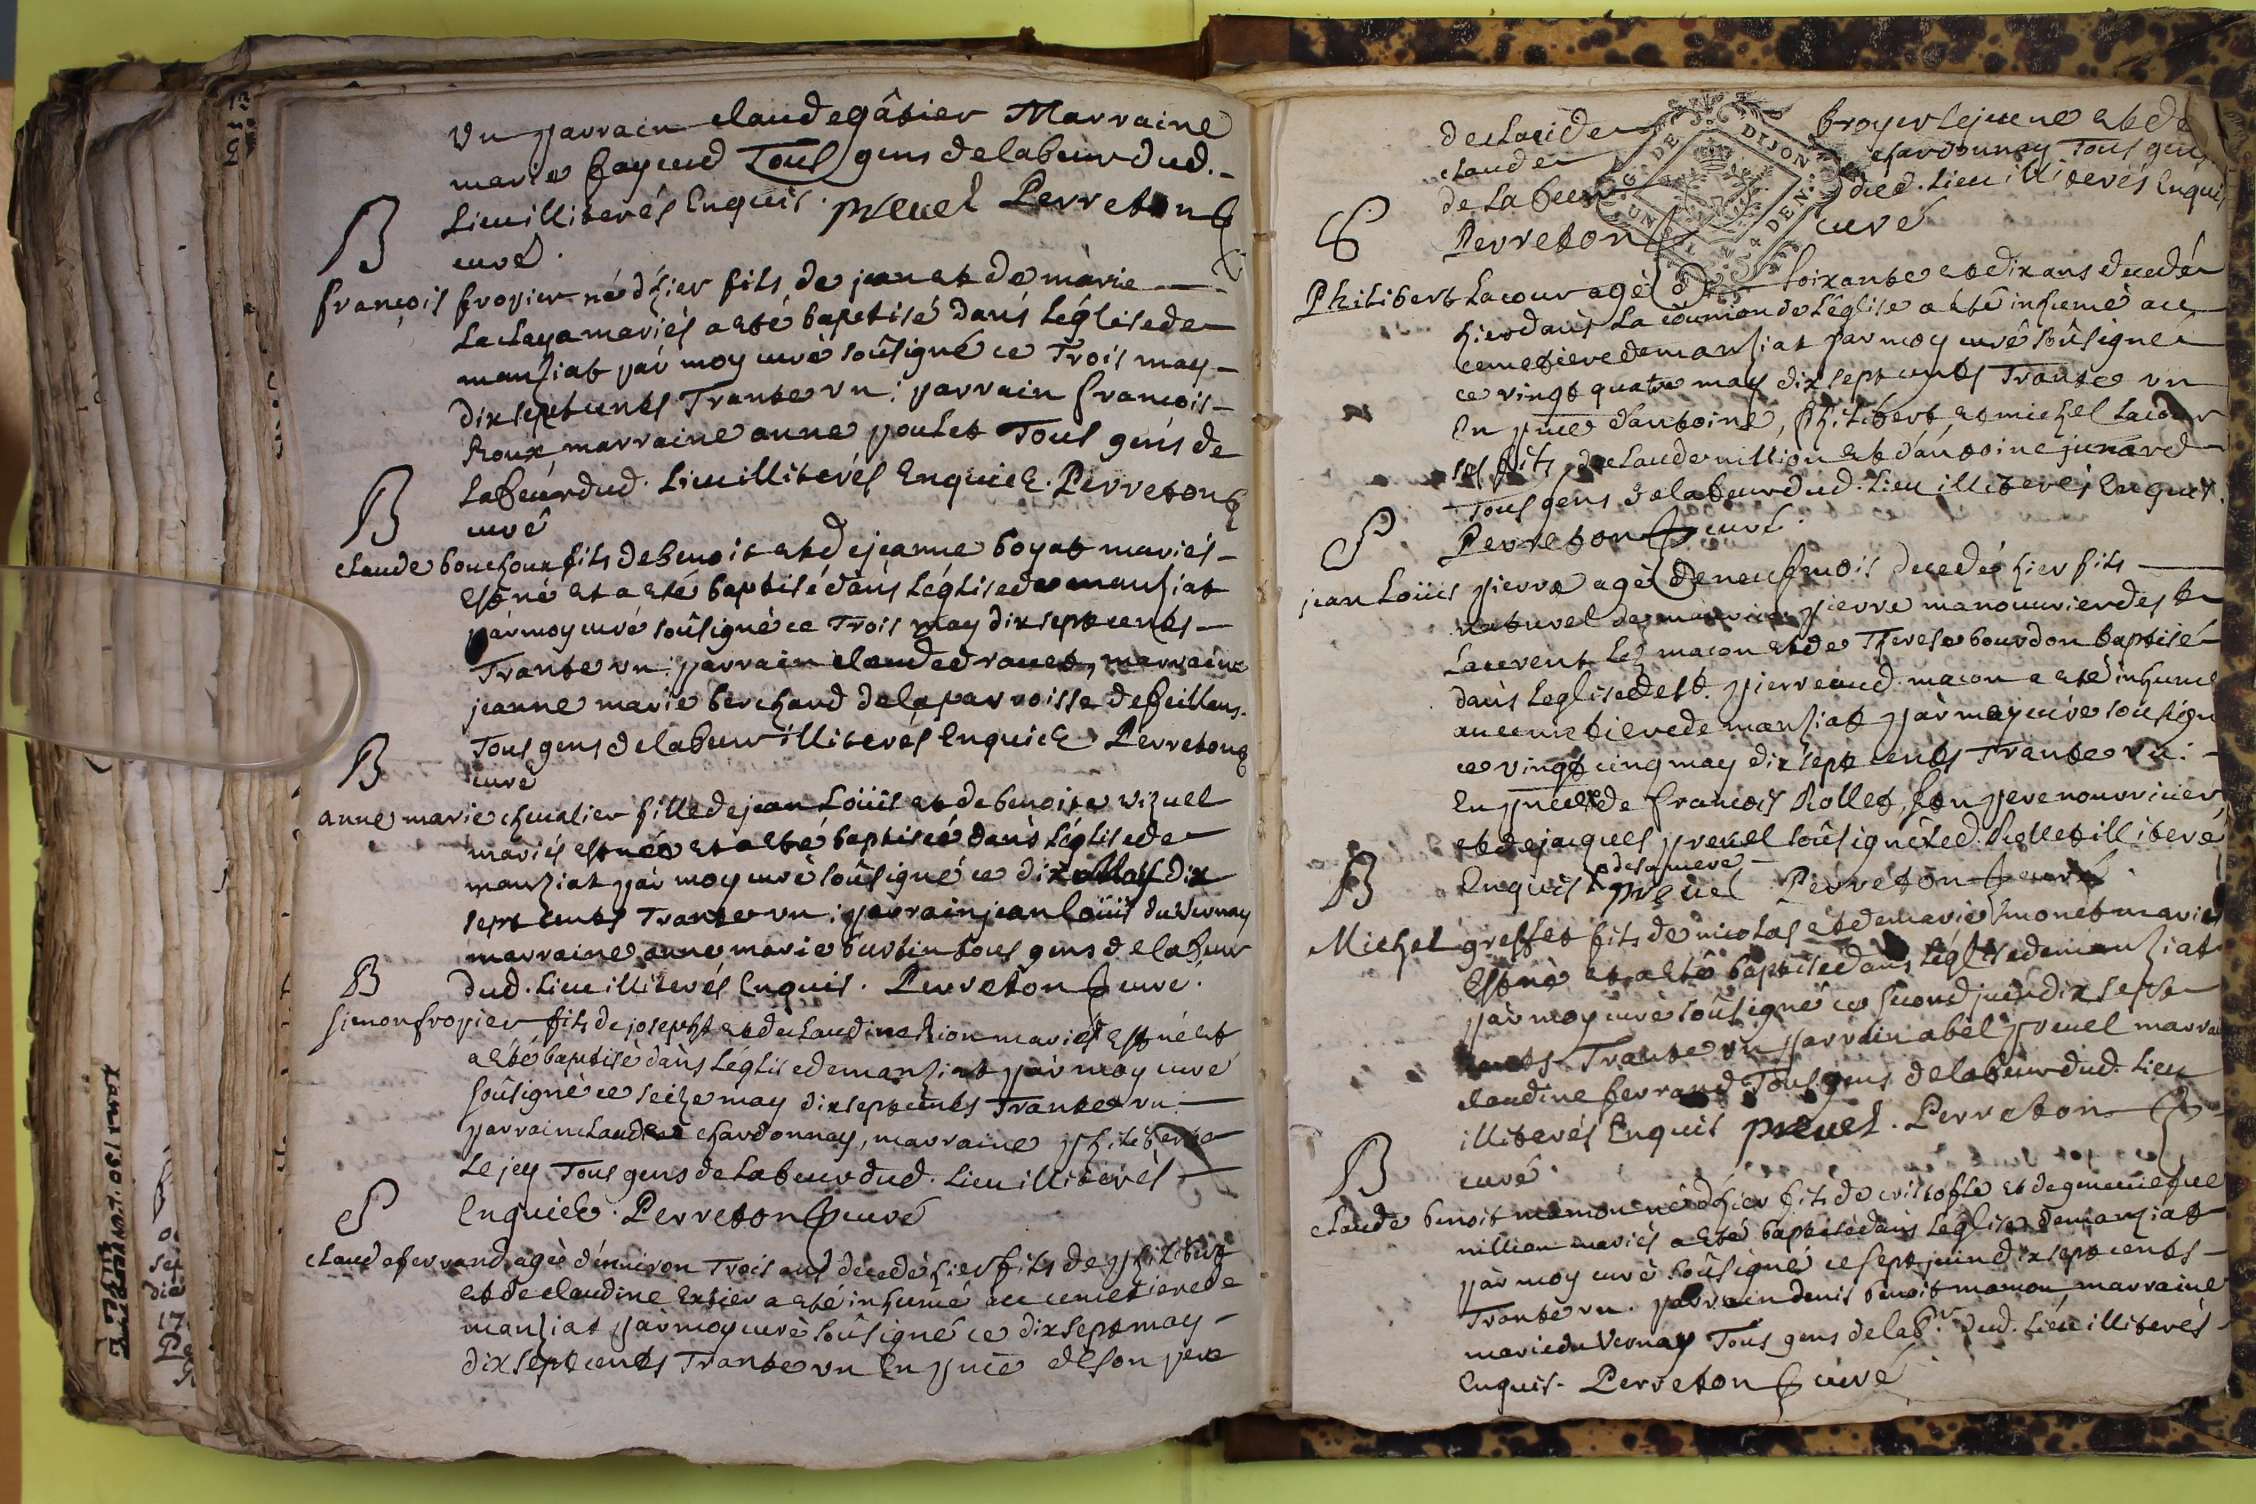 vn parrain claude gâtier Marraine
marie fayend Tous gens de labeur dud.
Lieu illiterés Enquis. preuel Perreton
curé.
B
françois froyier né d'hier fils de jean et de marie
La Laya mariés a eté baptisé dans Léglise de
manziat par moy curé soûsigné ce Trois may
dix sept cents Trante vn : parrain françois
Roux marraine anne poulet Tous gens de
Labeur dud. Lieu illiterés Enquis. Perreton
curé
B
claude bouchoux fils de benoit et de jeanne boyat mariés
est né et a eté baptisé dans Léglise de manziat
par moy curé soûsigné ce Trois may dix sept cents
Trante vn : parrain claude drouet, marraine
jeanne marie berchard de la parroisse de feillens.
Tous gens de labeur illiterés Enquis Perreton
curé
B
anne marie chevalier fille de jean Loüis et de benoite
mariés est née et a eté baptisée dans Léglise de
manziat par moy curé soûsigné ce dix May dix
sept cents Trante vn : parrain jean loüis duvernay
marraine anne marie burtin tous gens de labeur
dud. Lieu illiterés Enquis. Perreton curé.
B
simon froyier fils de joseph et de claudine Rion mariés est né et
a eté baptisé dans Léglise de manziat par moy curé
soûsigné ce seize may dix sept cents Trante vn.
parrain claude chardonnay, marraine philiberte
Le jey Tous gens de Labeur dud. Lieu illiterés
Enquis. Perreton curé
S
claude ferrand agé d'environ Trois ans decedé hier fils de philibert
et de claudine a eté inhumé au cemetiere de
manziat par moy curé soûsigné ce dix sept may
dix sept cents Trante vn En pnce de son pere
de claude froyer lejeune et de
claude chardonnay Tous gens
de Labeur dud. Lieu illiterés Enquis
Perreton curé
G. DE DIJON
S
Philibert Lacour agé de soixante et dix ans decedé
hier dans La commion de Léglise a eté inhumé au
cemetiere de manziat par moy curé soûsigné
ce vingt quatre may dix sept cents Trante vn
En pnce d'antoine, philibert, et michel Lacour
ses fils de claude nillion et d'antoine junard
Tous gens de labeur dud. Lieu illiterés Enquis.
Perreton curé.
S
jean Loüis pierre agé de neuf mois decedé hier fils
naturel de maurice pierre manouvrier de st
Laurent Lez macon et de Therese bourdon baptisé
dans Leglise de st. pierre aud. macon a eté inhumé
au cemetiere de manziat par moy curé soûsigné
ce vingt cinq may dix sept cents Trante vn.
En pnce de francois Rollet, son pere nourricier
et de jacques preuel soûsigné Led. Rollet illiteré
Enquis preuel Perreton curé
B
Michel greffet fils de nicolas et de marie monet mariés
Est né et a eté baptisé dans Léglise de manziat
par moy curé soûsigné ce second juin dix sept
cents Trante vn parrain abel preuel marrai
claudine ferrand Tous gens de labeur dud. Lieu
illiterés Enquis preuel. Perreton
curé.
B
claude benoit mamon né d'hier fils de cristofle et de genevieve
nillion mariés a eté baptisé dans Léglise de manziat
par moy curé soûsigné ce sept juin dix sept cents
Trante vn. parrain denis benoit mamon marraine
marie du Vernay Tous gens de labr dud. Lieu illiterés
Enquis. Perreton curé